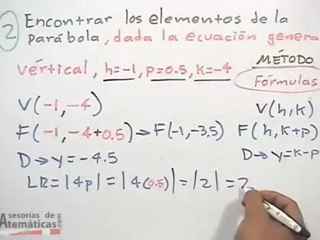 2 Encontrar los elementos de la
parábola, dada la ecuación genera
vértical, h=-1, p=0.5, k=-4
MÉTODO
Fórmulas
V(-1,-4)
V(h,k)
F(-1,-4+0.5)→F(-1,-3.5)
F(h,k+p)
D→y=-4.5
D→y=k-p
LR=|4p|=|4(0.5)|=|2|=2
asesorías de
Matemáticas